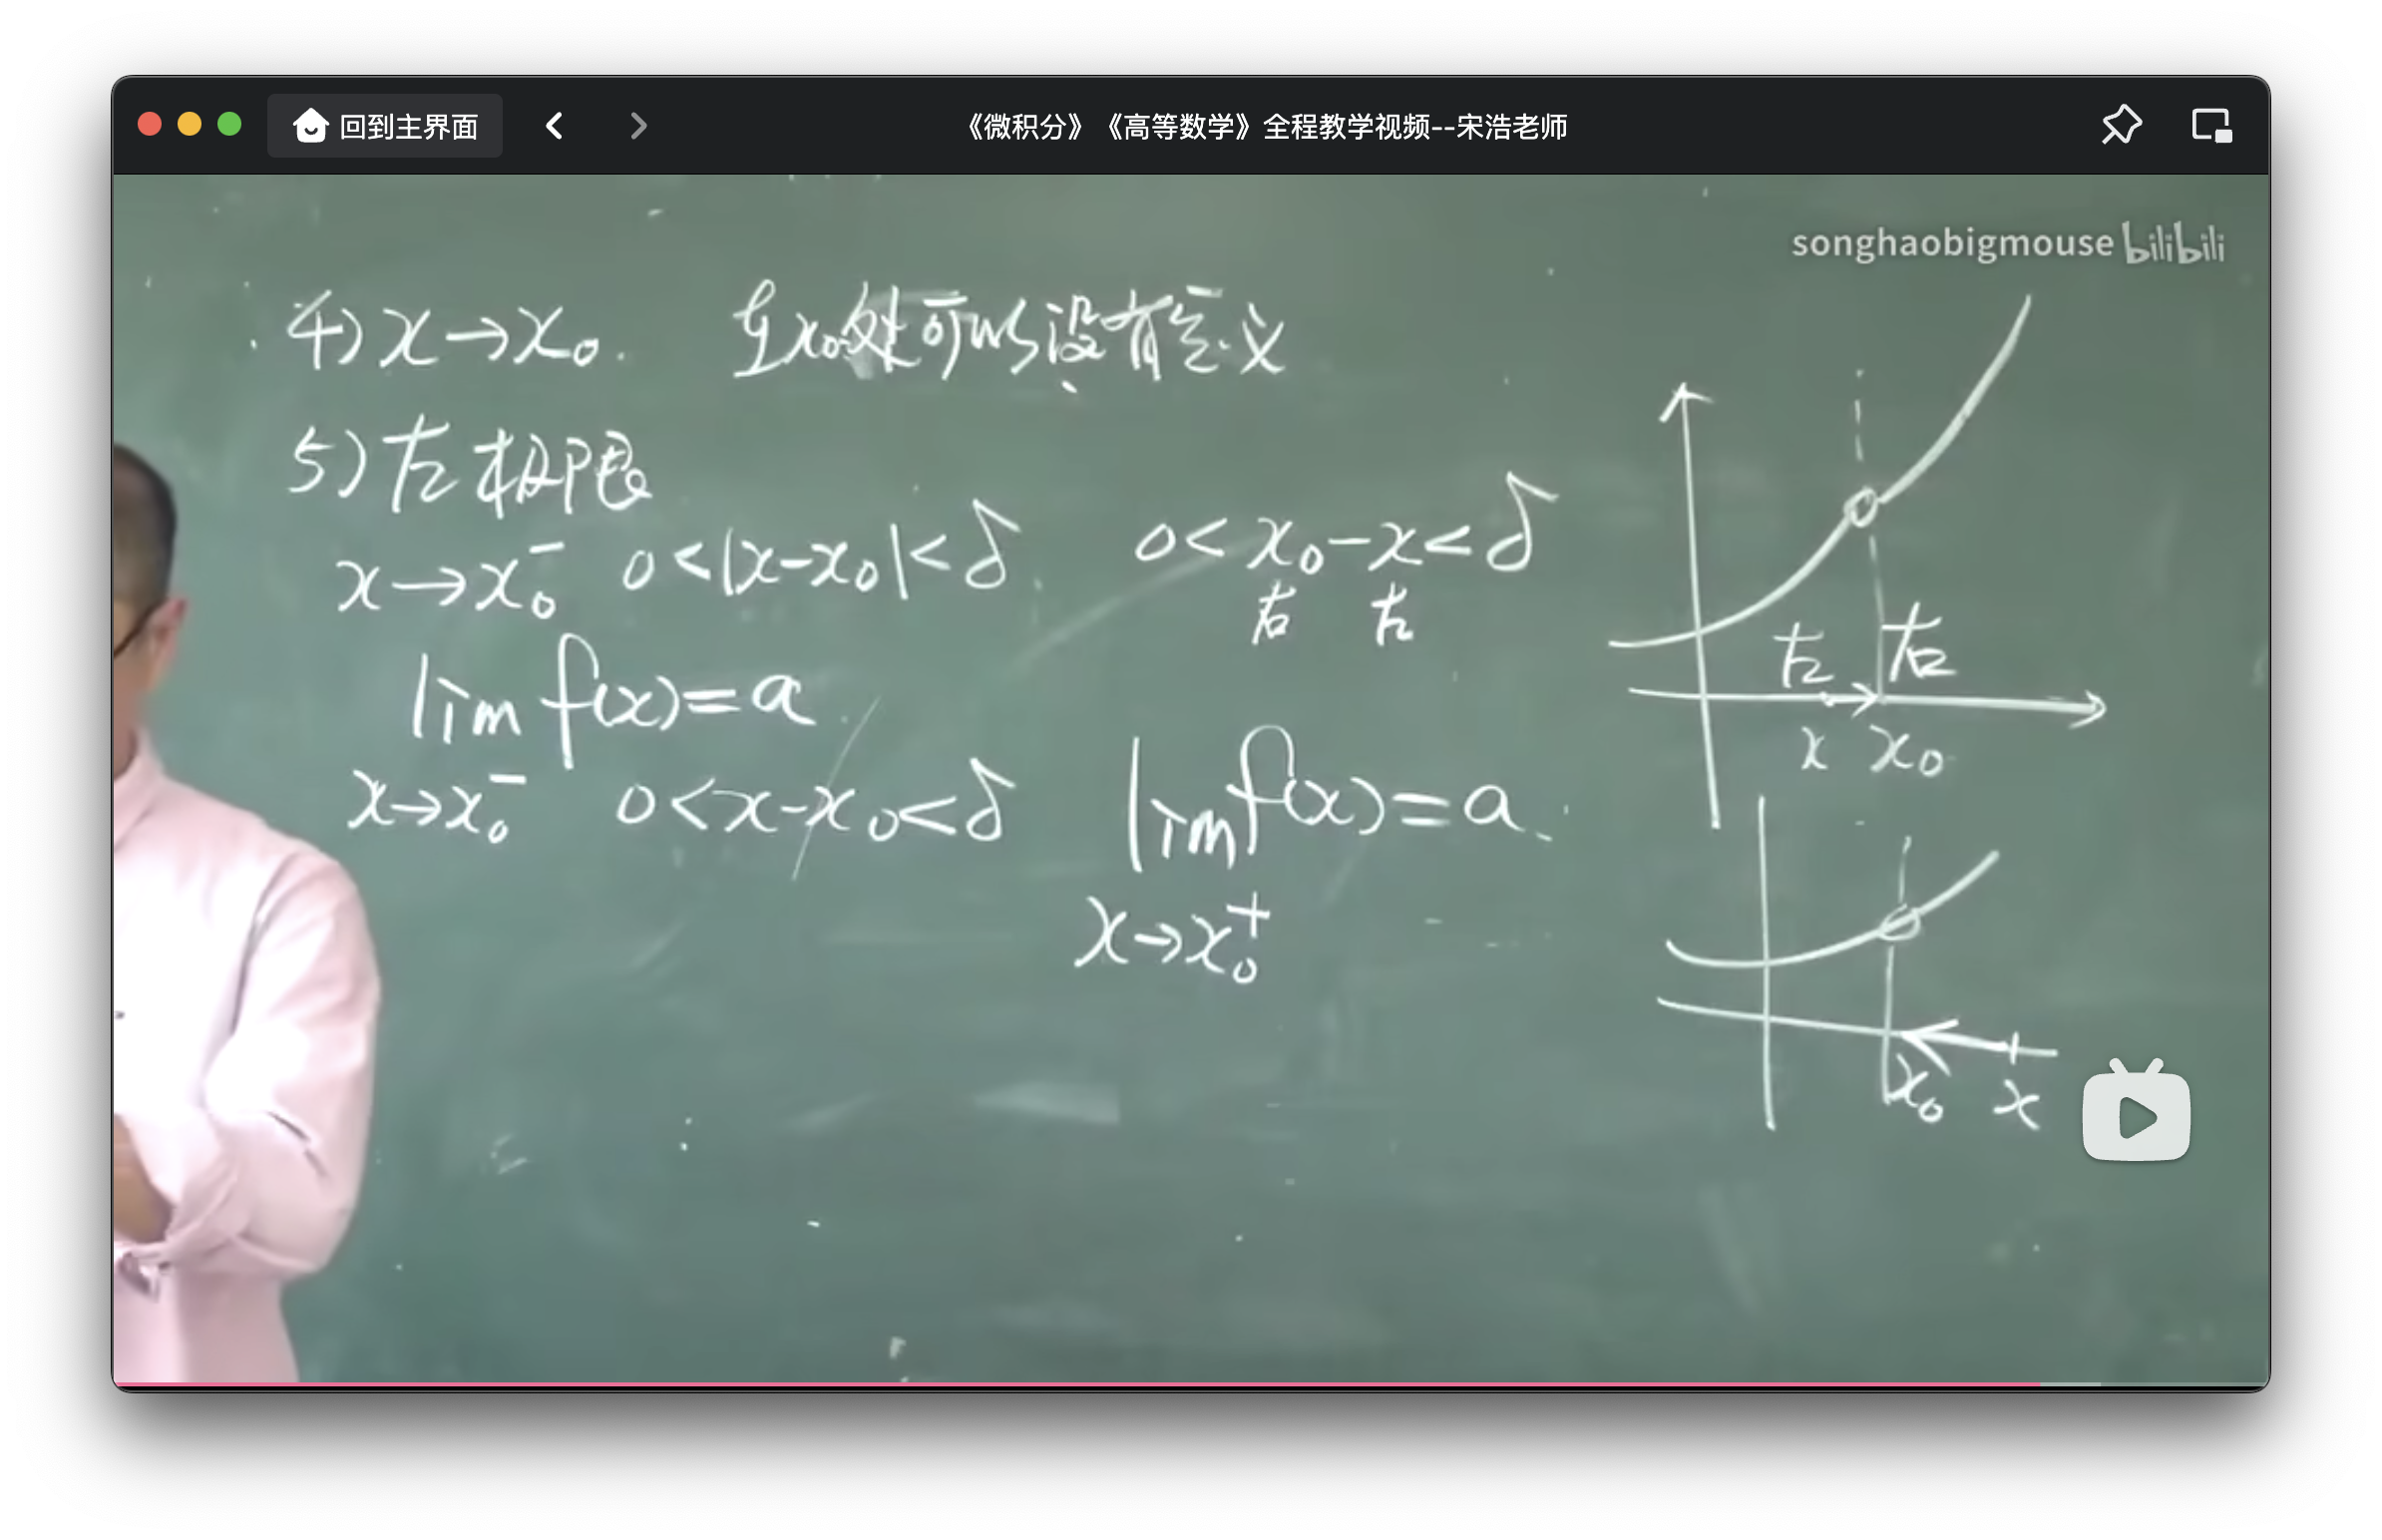 回到主界面
《微积分》《高等数学》全程教学视频--宋浩老师
songhaobigmouse bilibili
4) x→x₀. 在x₀处可以没有定义
5) 左极限
x→x₀⁻ 0<|x-x₀|<δ 0<x₀-x<δ
右 左
lim f(x)=a
x→x₀⁻ 0<x-x₀<δ
lim f(x)=a
x→x₀⁺
左 右
x x₀
x₀ x